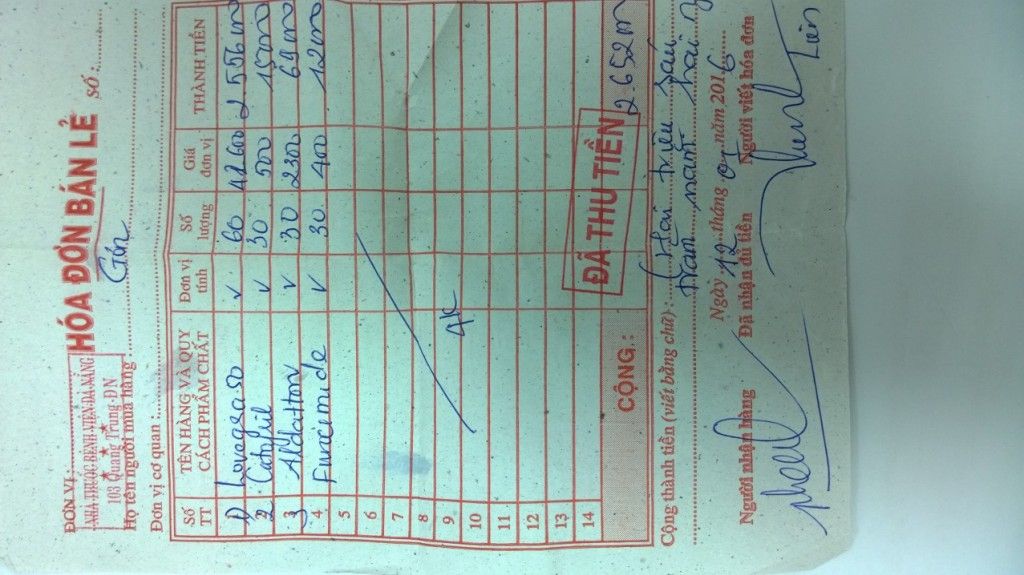 ĐƠN VỊ
NHÀ THUỐC BỆNH VIỆN ĐÀ NẴNG
103 Quang Trung - ĐN
HÓA ĐƠN BÁN LẺ
SỐ:
Họ tên người mua hàng:
Đơn vị cơ quan:
Số TT TÊN HÀNG VÀ QUY CÁCH PHẨM CHẤT Đơn vị tính Số lượng Giá đơn vị THÀNH TIỀN
1 V 60 42600 2.556
2 V 30 500 15
3 V 30 2300 69
4 V 30 400 12
5
6
7
8
9 4K
10
11
12
13
14
CỘNG: 2.652
ĐÃ THU TIỀN
Cộng thành tiền (viết bằng chữ): Hai triệu sáu
trăm năm hai
Ngày 12 tháng năm 2016
Người nhận hàng Đã nhận đủ tiền Người viết hóa đơn
Tiên